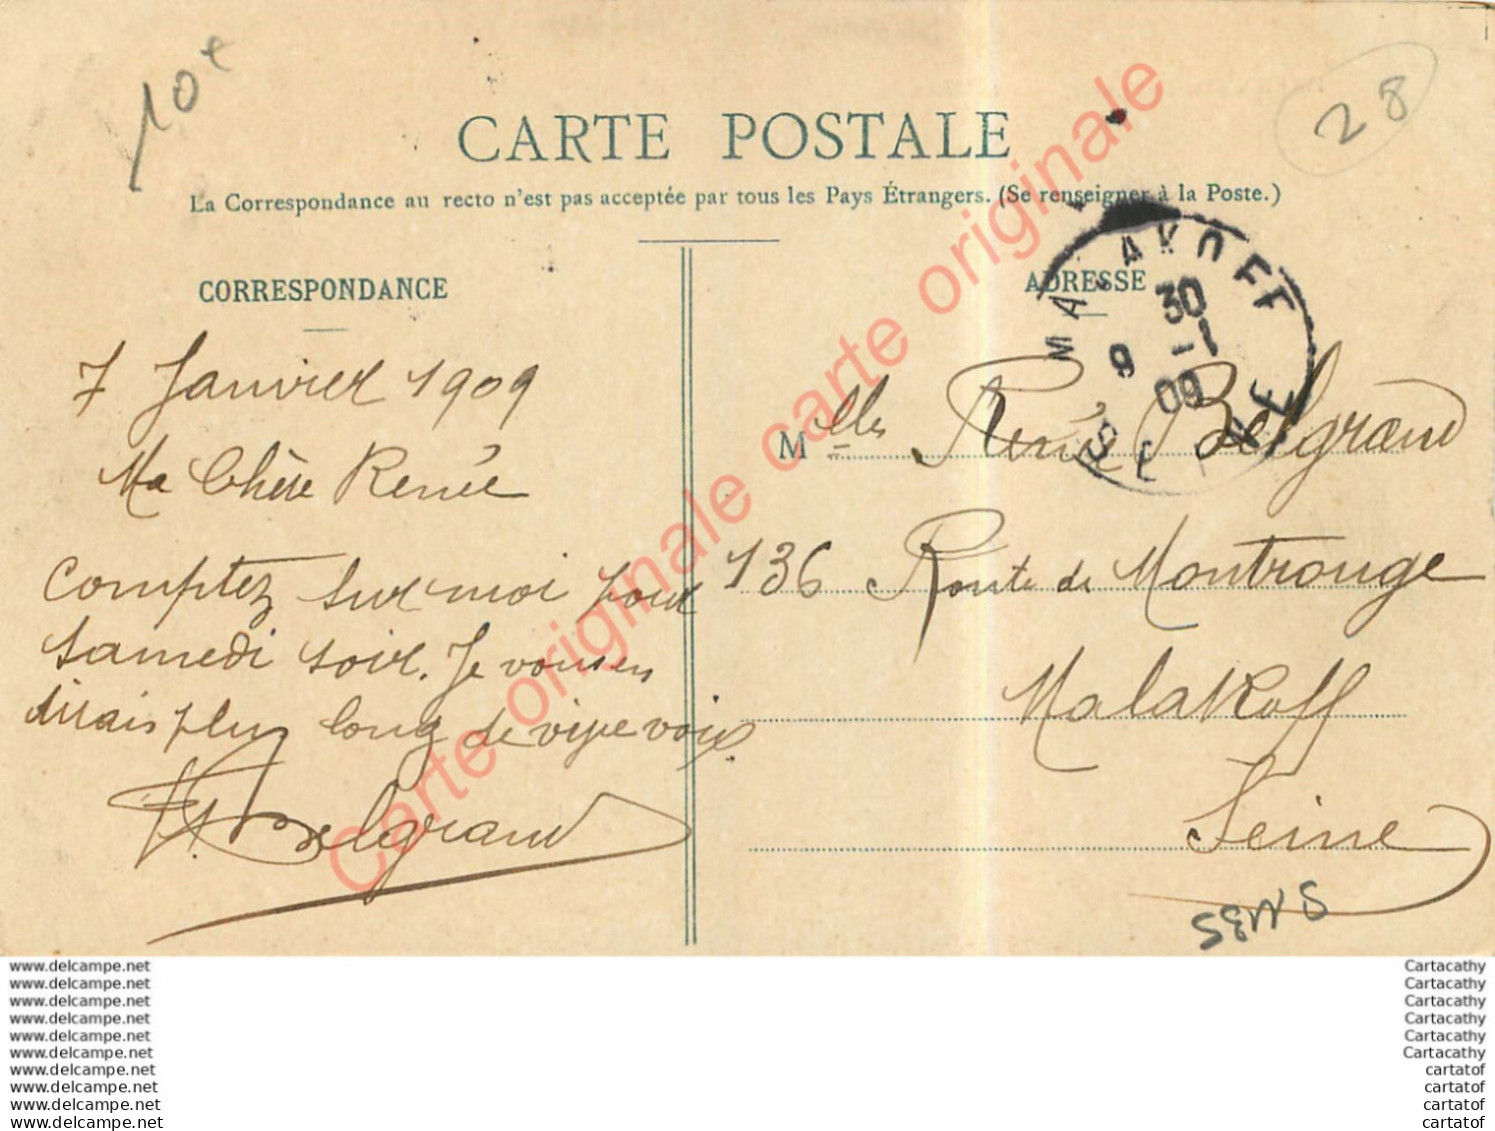 10€
28
CARTE POSTALE
La Correspondance au recto n'est pas acceptée par tous les Pays Étrangers. (Se renseigner à la Poste.)
CORRESPONDANCE
7 Janvier 1909
Ma Chère Renée
Comptez sur moi pour
samedi soir. Je vous en
dirais plus long de vive voix
Belgrand
ADRESSE
MALAKOFF
30
9 -1
09
SEINE
Melles Renée Belgrand
136 Route de Montrouge
Malakoff
Seine
Carte originale carte originale carte originale
www.delcampe.net
www.delcampe.net
www.delcampe.net
www.delcampe.net
www.delcampe.net
www.delcampe.net
www.delcampe.net
www.delcampe.net
www.delcampe.net
www.delcampe.net
Cartacathy
Cartacathy
Cartacathy
Cartacathy
Cartacathy
Cartacathy
cartatof
cartatof
cartatof
cartatof